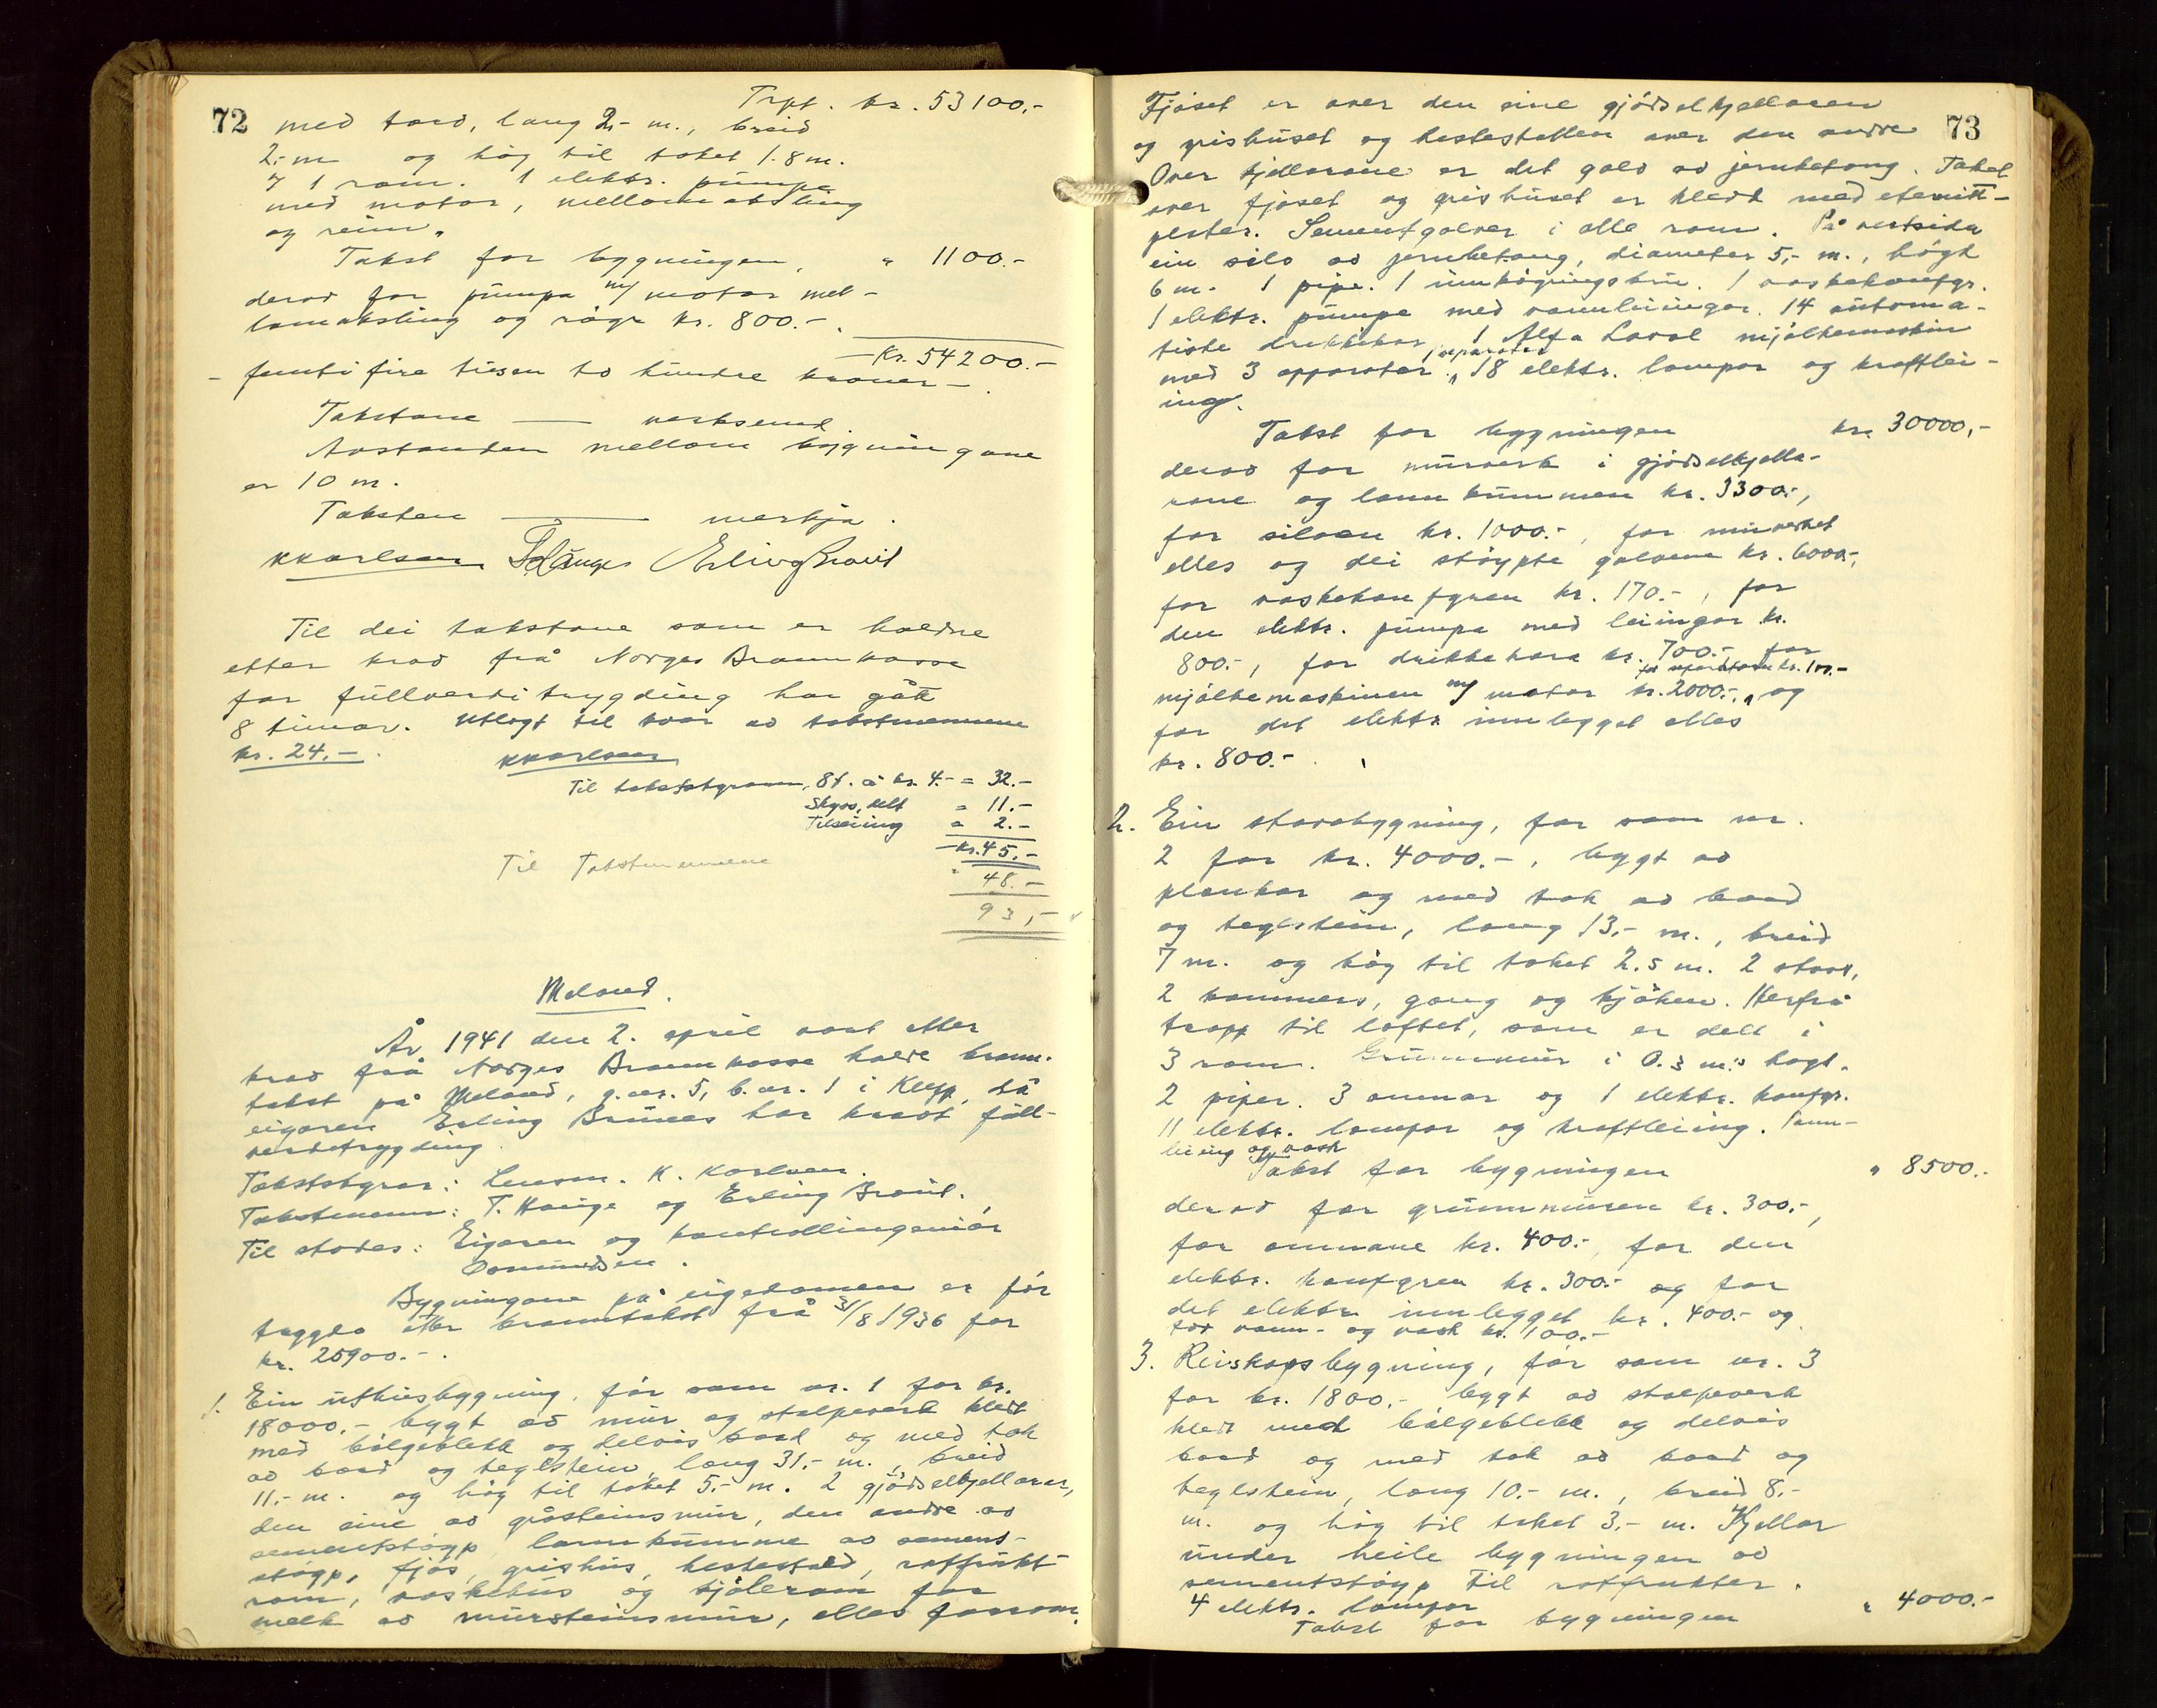 72
Trpt. kr. 53100.-
med bord, lang 2,- m., breid
2,- m og høg til taket 1.8 m.
1 rom. 1 elektr. pumpe
med motor, mellomaksling
og reim.
Takst for bygningen " 1100.-
derav for pumpa m/ motor mel-
lomaksling og kr. 800.-
Kr. 54200.-
- femti fire tusen to hundre kroner -
Takstane — verksemd
Avstanden mellom bygningane
er 10 m.
Taksten — merkja.
K Karlsen T Hauge Erling Braut
Til dei takstane som er haldne
etter krav frå Norges Brannkasse
for fullverditrygding har gått
8 timar. Utlagt til kvar av takstmennene
kr. 24.-
K Karlsen
Til takststyraren, 8 t. à kr. 4.- = 32.-
Skyss, delt = 11.-
Tilseiing = 2.-
Kr. 45.-
Til Takstmennene " 48.-
93,-
Meland.
År 1941 den 2. april vart etter
krav frå Norges Brannkasse halde brann-
takst på Meland, g.nr. 5, b.nr. 1 i Klepp, då
eigaren Erling Brunes har kravt full-
verditrygding.
Takststyrar: Lensm. K. Karlsen.
Takstmenn: T. Hauge og Erling Braut.
Til stades: Eigaren og kontrollingeniør
Bygningane på eigedomen er før
trygda etter branntakst frå 31/8 1936 for
kr. 25900.-.
1. Ein uthusbygning, før som nr. 1 for kr.
18000.- bygt av mur og stolpeverk kledt
med bølgeblekk og delvis bord og med tak
av bord og teglstein, lang 31.- m., breid
11.- m. og høg til taket 5.- m. 2 gjødselkjellarar,
den eine av gråsteinsmur, den andre av
sementstøyp, lannkumme av sement-
støyp, fjøs, grishus, hestestall, rotfrukt-
rom, vaskehus og kjølerom for
melk av mursteinsmur, elles forrom.
73
Fjøset er over den eine gjødselkjellaren
og grishuset og hestestallen over den andre
Over kjellarane er det golv av jernbetong. Taket
over fjøset og grishuset er kledt med eternitt-
plater. Sementgolver i alle rom. På vestsida
ein silo av jernbetong, diameter 5,- m., høgd
6 m. 1 pipe. 1 innkøyringsbru. 1 vaskekomfyr.
1 elektr. pumpe med vannleiingar. 14 automa-
tiske drikkekar 1 Alfa Laval mjølkemaskin
med 3 apparatar, 1 separator 18 elektr. lampar og kraftlei-
ing.
Takst for bygningen kr. 30000,-
derav for murverk i gjødselkjella-
rane og lannkummen kr. 3300.-,
for siloen kr. 1000.-, for murverket
elles og dei støypte golvene kr. 6000.-,
for vaskekomfyren kr. 170.-, for
den elektr. pumpa med leiingar kr.
800.-, for drikkekara kr. 700.-, for
mjølkemaskinen m/ motor kr. 2000.-, for separatoren kr. 100.- og
for det elektr. innlegget elles
kr. 800.-.
2. Ein stovebygning, før som nr.
2 for kr. 4000.-, bygt av
plankar og med tak av bord
og teglstein, lang 13,- m., breid
7 m. og høg til taket 2.5 m. 2 stover,
2 kammers, gang og kjøken. Herfrå
tropp til loftet, som er delt i
3 rom. Grunnmur i 0.3 m's høgd.
2 piper. 3 omnar og 1 elektr. komfyr.
11 elektr. lampar og kraftleiing. Vann-
leiing og vask
Takst for bygningen " 8500.-
derav for grunnmuren kr. 300.-,
for omnane kr. 400.- for den
elektr. komfyren kr. 300.- og for
det elektr. innlegget kr. 400.- og
for vann- og vask kr. 100.-
3. Reiskapsbygning, før som nr. 3
for kr. 1800.- bygt av stolpeverk
kledt med bølgeblekk og delvis
bord og med tak av bord og
teglstein, lang 10.- m., breid 8.-
m. og høg til taket 3,- m. Kjellar
under heile bygningen av
sementstøyp til rotfrukter.
4 elektr. lampar
Takst for bygningen " 4000.-